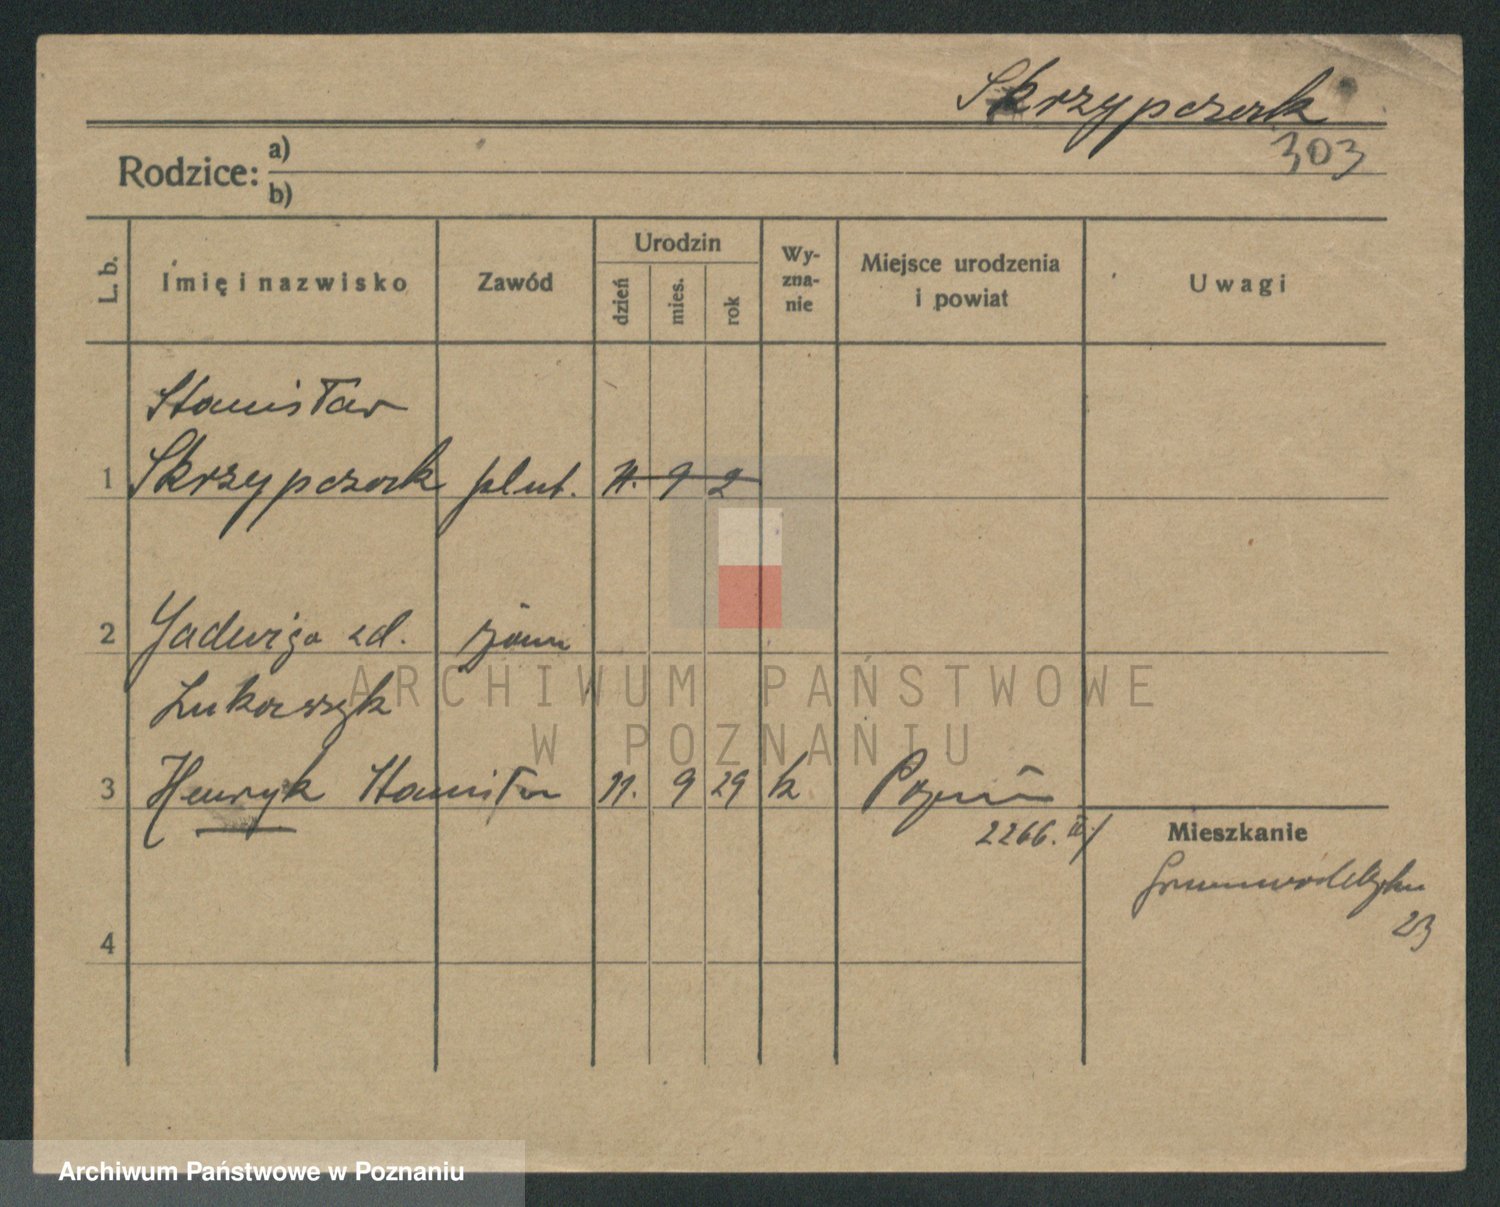 Skrzypczak
303
Rodzice: a)
b)
L. b.
Imię i nazwisko
Zawód
Urodzin
dzień
mies.
rok
Wy-
zna-
nie
Miejsce urodzenia
i powiat
Uwagi
Stanisław
1 Skrzypczak plut. 11. 9 2
2 Jadwiga zd. żona
Łukaszyk
3 Henryk Stanisław 11. 9 29 k Poznań
2266.
Mieszkanie
23
4
ARCHIWUM PAŃSTWOWE
W POZNANIU
Archiwum Państwowe w Poznaniu